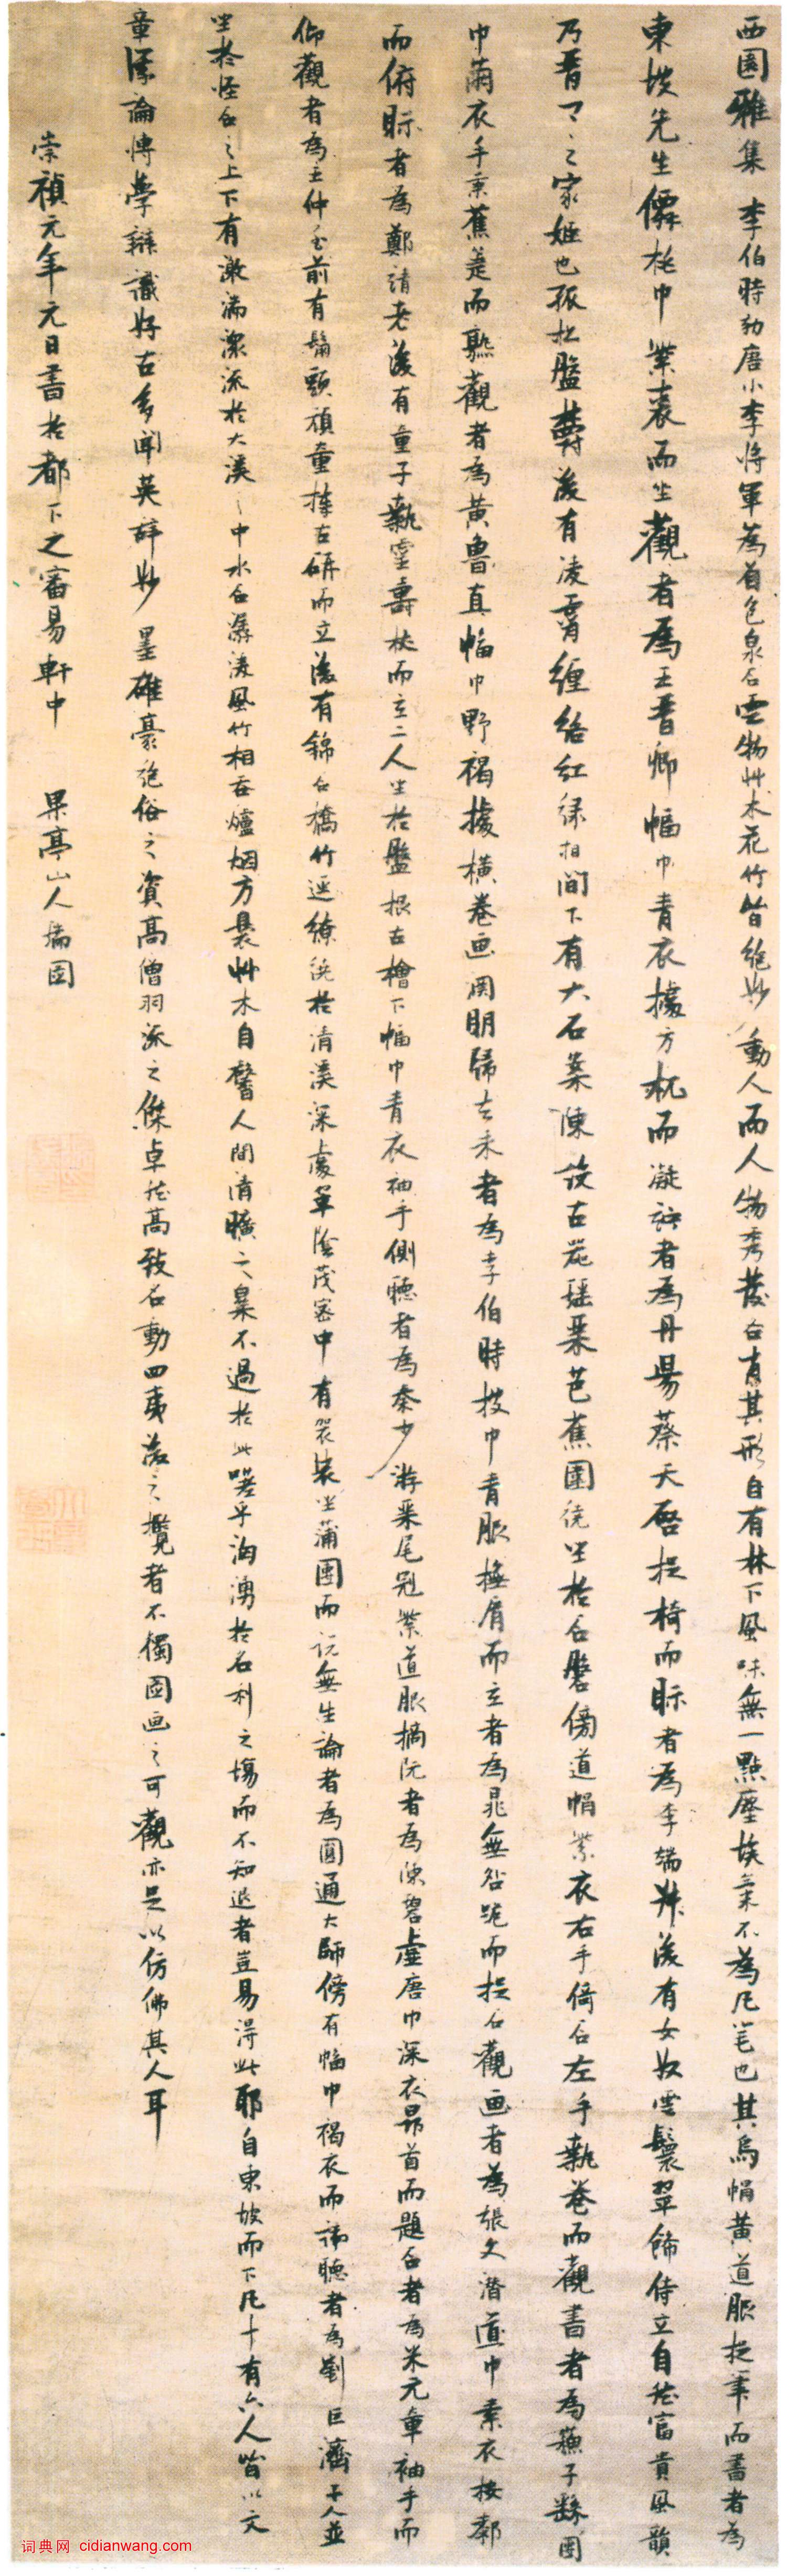 西園雅集 李伯時効唐小李將軍為着色泉石雲物艸木花竹皆絶妙動人而人物秀發各肖其形自有林下風味無一點塵埃氣不為凡筆也其烏帽黄道服捉筆而書者為
東坡先生僊桃巾紫裘而坐觀者為王晋卿幅巾青衣據方杌而凝竚者為丹陽蔡天啓捉椅而眎者為李端叔後有女奴雲鬟翠飾侍立自然富貴風韻
乃晋卿之家姬也孤松盤欝後有凌霄纏絡紅緑相間下有大石案陳設古器瑶琹芭蕉圍繞坐於石磐傍道帽紫衣右手倚石左手執卷而觀書者為蘇子繇團
巾繭衣手秉蕉箑而熟觀者為黄魯直幅巾野褐據横卷画淵明歸去来者為李伯時披巾青服撫肩而立者為晁無咎跪而捉石觀画者為張文潛道巾素衣按膝
而俯眎者為鄭靖老後有童子執靈壽杖而立二人坐於盤根古檜下幅巾青衣袖手側聽者為秦少游琹尾冠紫道服摘阮者為陳碧虚唐巾深衣昻首而題石者為米元章袖手而
仰觀者為王仲至前有鬅頭頑童捧古硯而立後有錦石橋竹逕繚繞於清溪深處翠陰茂密中有袈裟坐蒲團而説無生論者為圓通大師傍有幅巾褐衣而諦聽者為劉巨濟二人並
坐於怪石之上下有激湍潨流於大溪之中水石潺湲風竹相吞爐烟方裊艸木自馨人間清曠之樂不過於此嗟乎洶湧於名利之場而不知退者豈易得此耶自東坡而下凡十有六人皆以文
章議論博學辯識好古多聞英辭妙墨雄豪絶俗之資高僧羽流之傑卓然高致名動四夷後之攬者不獨圖画之可觀亦足以仿佛其人耳
崇禎元年元日書於都下之審易軒中 果亭山人瑞圖
词典网 cidianwang.com